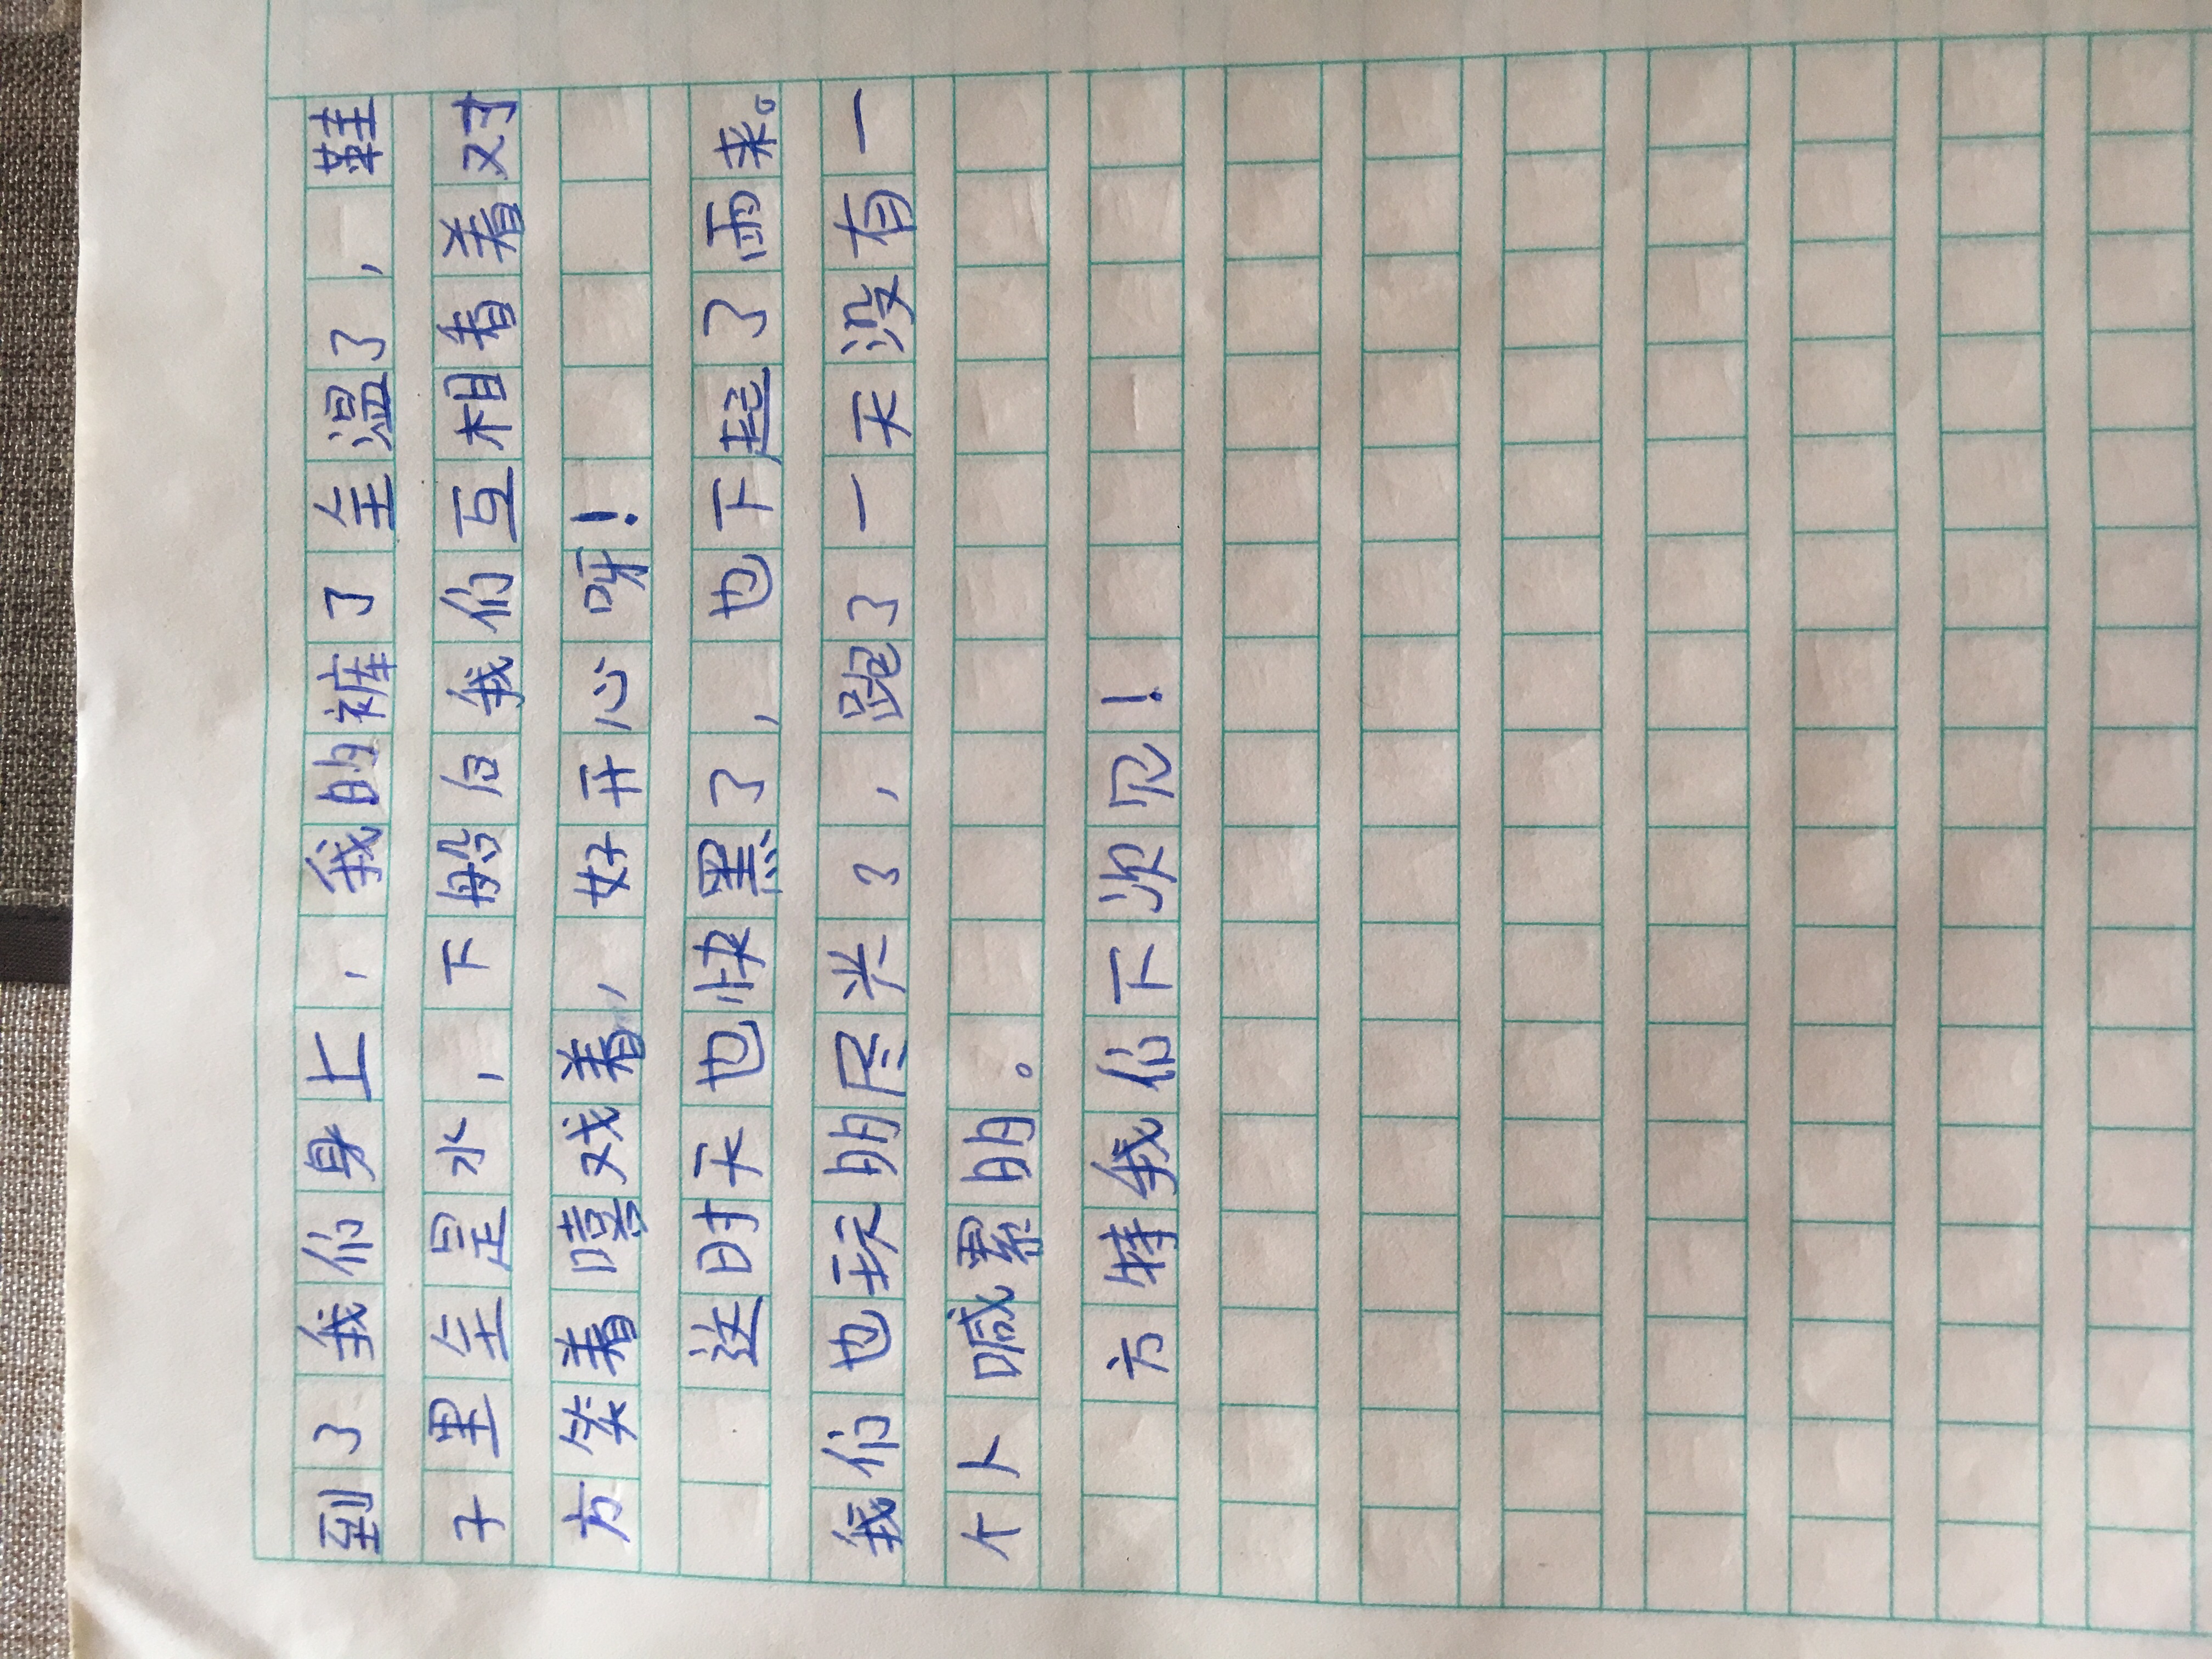 到了我们身上，我的裤了全湿了，鞋
子里全是水，下船后我们互相看着对
方笑着嘻戏着，好开心呀！
这时天也快黑了，也下起了雨来。
我们也玩的尽兴了，跑了一天没有一
个人喊累的。
方特我们下次见！